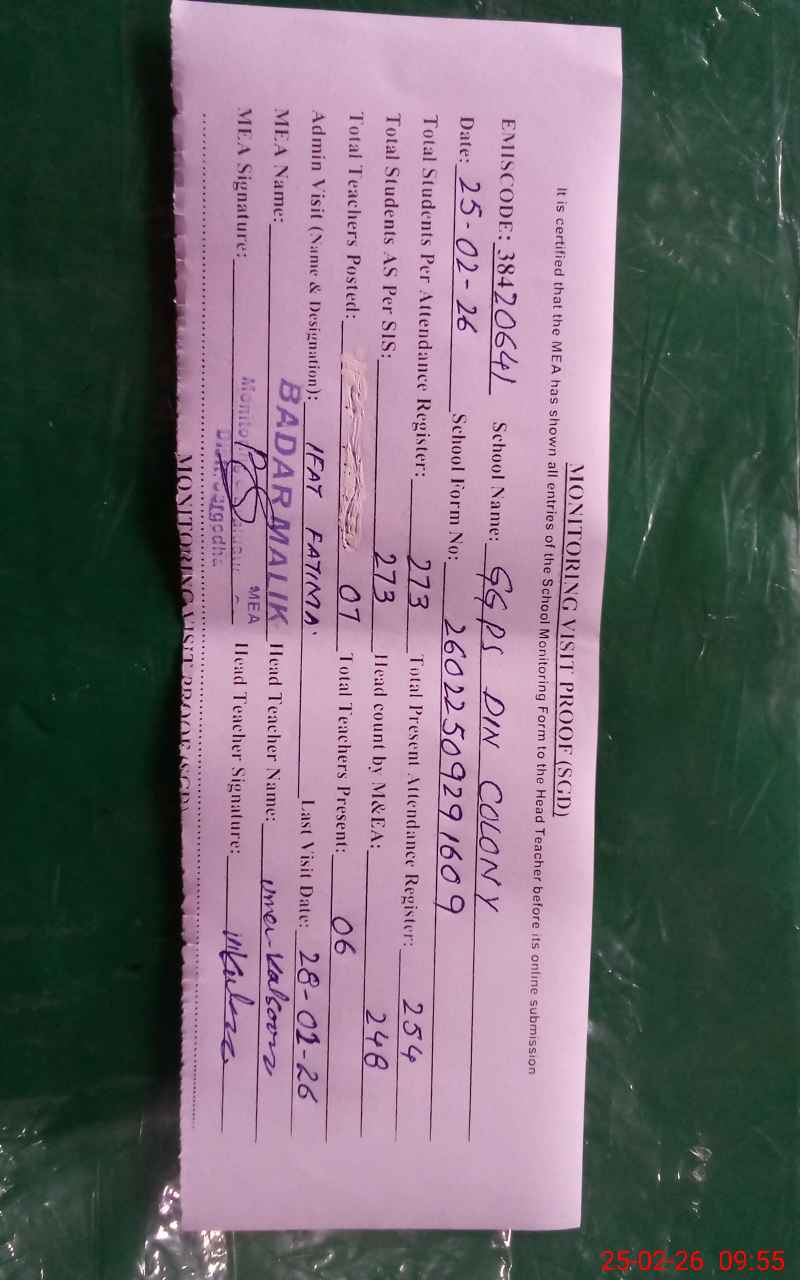 MONITORING VISIT PROOF (SGD)
It is certified that the MEA has shown all entries of the School Monitoring Form to the Head Teacher before its online submission
EMISCODE: 38420641 School Name: GGPS DIN COLONY
Date: 25-02-26 School Form No: 2602250929 1609
Total Students Per Attendance Register: 273 Total Present Attendance Register: 254
Total Students AS Per SIS: 273 Head count by M&EA: 248
Total Teachers Posted: 07 Total Teachers Present: 06
Admin Visit (Name & Designation): IFAT FATIMA Last Visit Date: 28-01-26
MEA Name: BADAR MALIK Head Teacher Name:
MEA
MEA Signature: Head Teacher Signature:
MONITORING VISIT PROOF (SGD)
25-02-26 09:55